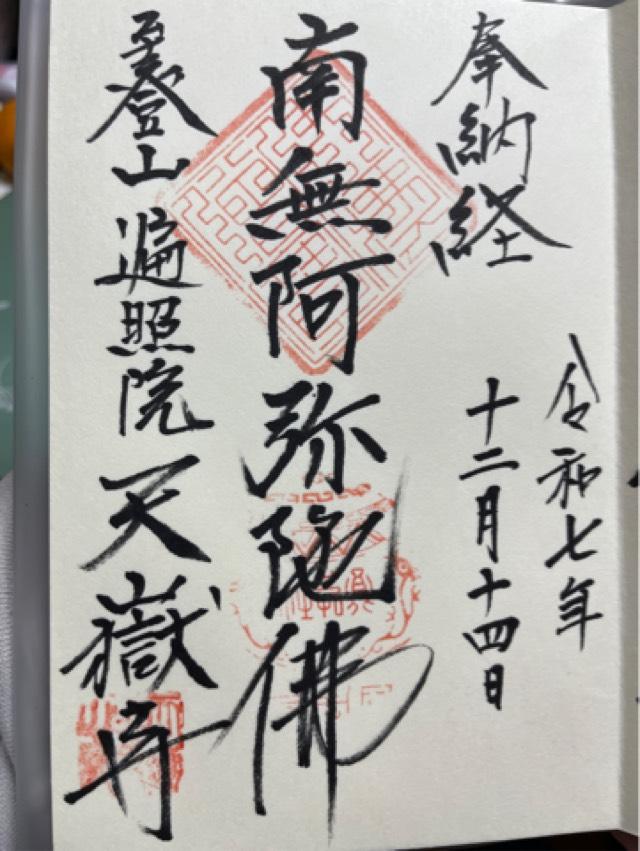 奉納経
令和七年
十二月十四日
南無阿弥陀佛
至登山遍照院天嶽寺